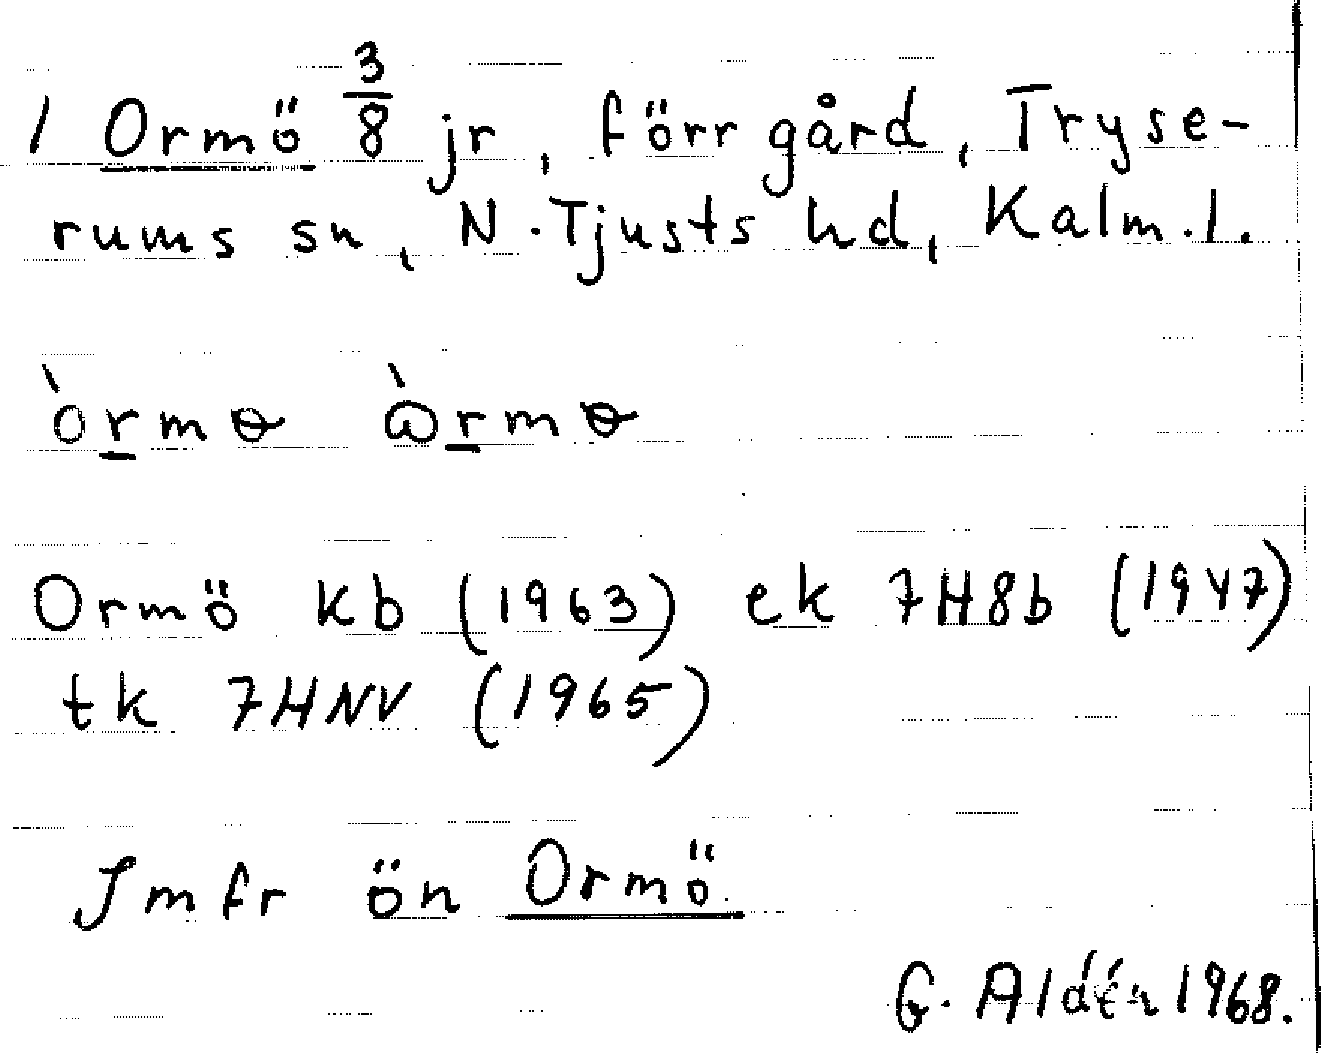 1 Ormö 3/8 jr, förr gård, Tryse-
rums sn, N. Tjusts hd, Kalm. l.
òrmɵ ὼrmɵ
Ormö kb (1963) ek 7H8b (1947)
tk 7HNV (1965)
Jmfr ön Ormö
G. Aldén 1968.